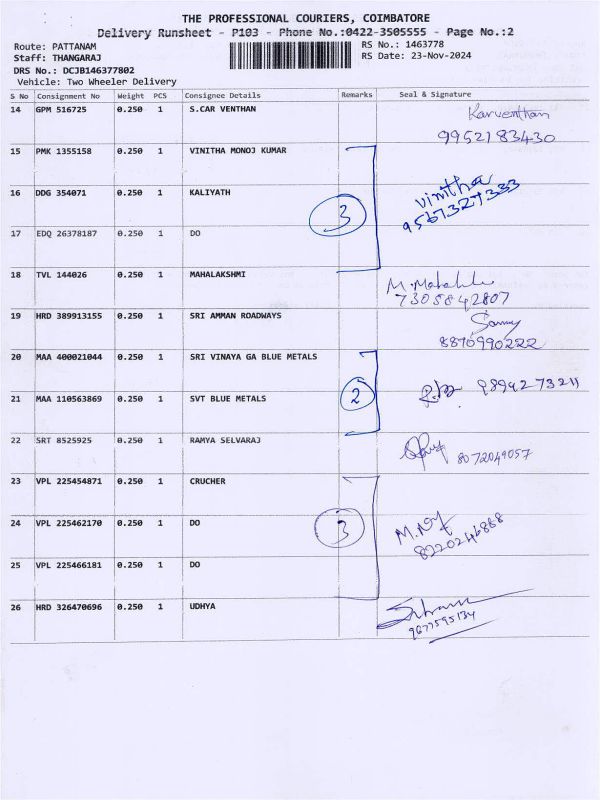 THE PROFESSIONAL COURIERS, COIMBATORE
Delivery Runsheet - P103 - Phone No.:0422-3505555 - Page No.:2
Route: PATTANAM
RS No.: 1463778
Staff: THANGARAJ
RS Date: 23-Nov-2024
DRS No.: DCJB146377802
Vehicle: Two Wheeler Delivery
S No Consignment No Weight PCS Consignee Details Remarks Seal & Signature
14 GPM 516725 0.250 1 S.CAR VENTHAN Karventhan
9952183430
15 PMK 1355158 0.250 1 VINITHA MONOJ KUMAR
16 DDG 354071 0.250 1 KALIYATH 3 Vinitha
9567327333
17 EDQ 26378187 0.250 1 DO
18 TVL 144026 0.250 1 MAHALAKSHMI
7305842807
19 HRD 389913155 0.250 1 SRI AMMAN ROADWAYS
8870990222
20 MAA 400021044 0.250 1 SRI VINAYA GA BLUE METALS
21 MAA 110563869 0.250 1 SVT BLUE METALS 2 9894273211
22 SRT 8525925 0.250 1 RAMYA SELVARAJ 8072049057
23 VPL 225454871 0.250 1 CRUCHER
24 VPL 225462170 0.250 1 DO 3
8220246888
25 VPL 225466181 0.250 1 DO
26 HRD 326470696 0.250 1 UDHYA
9677595134